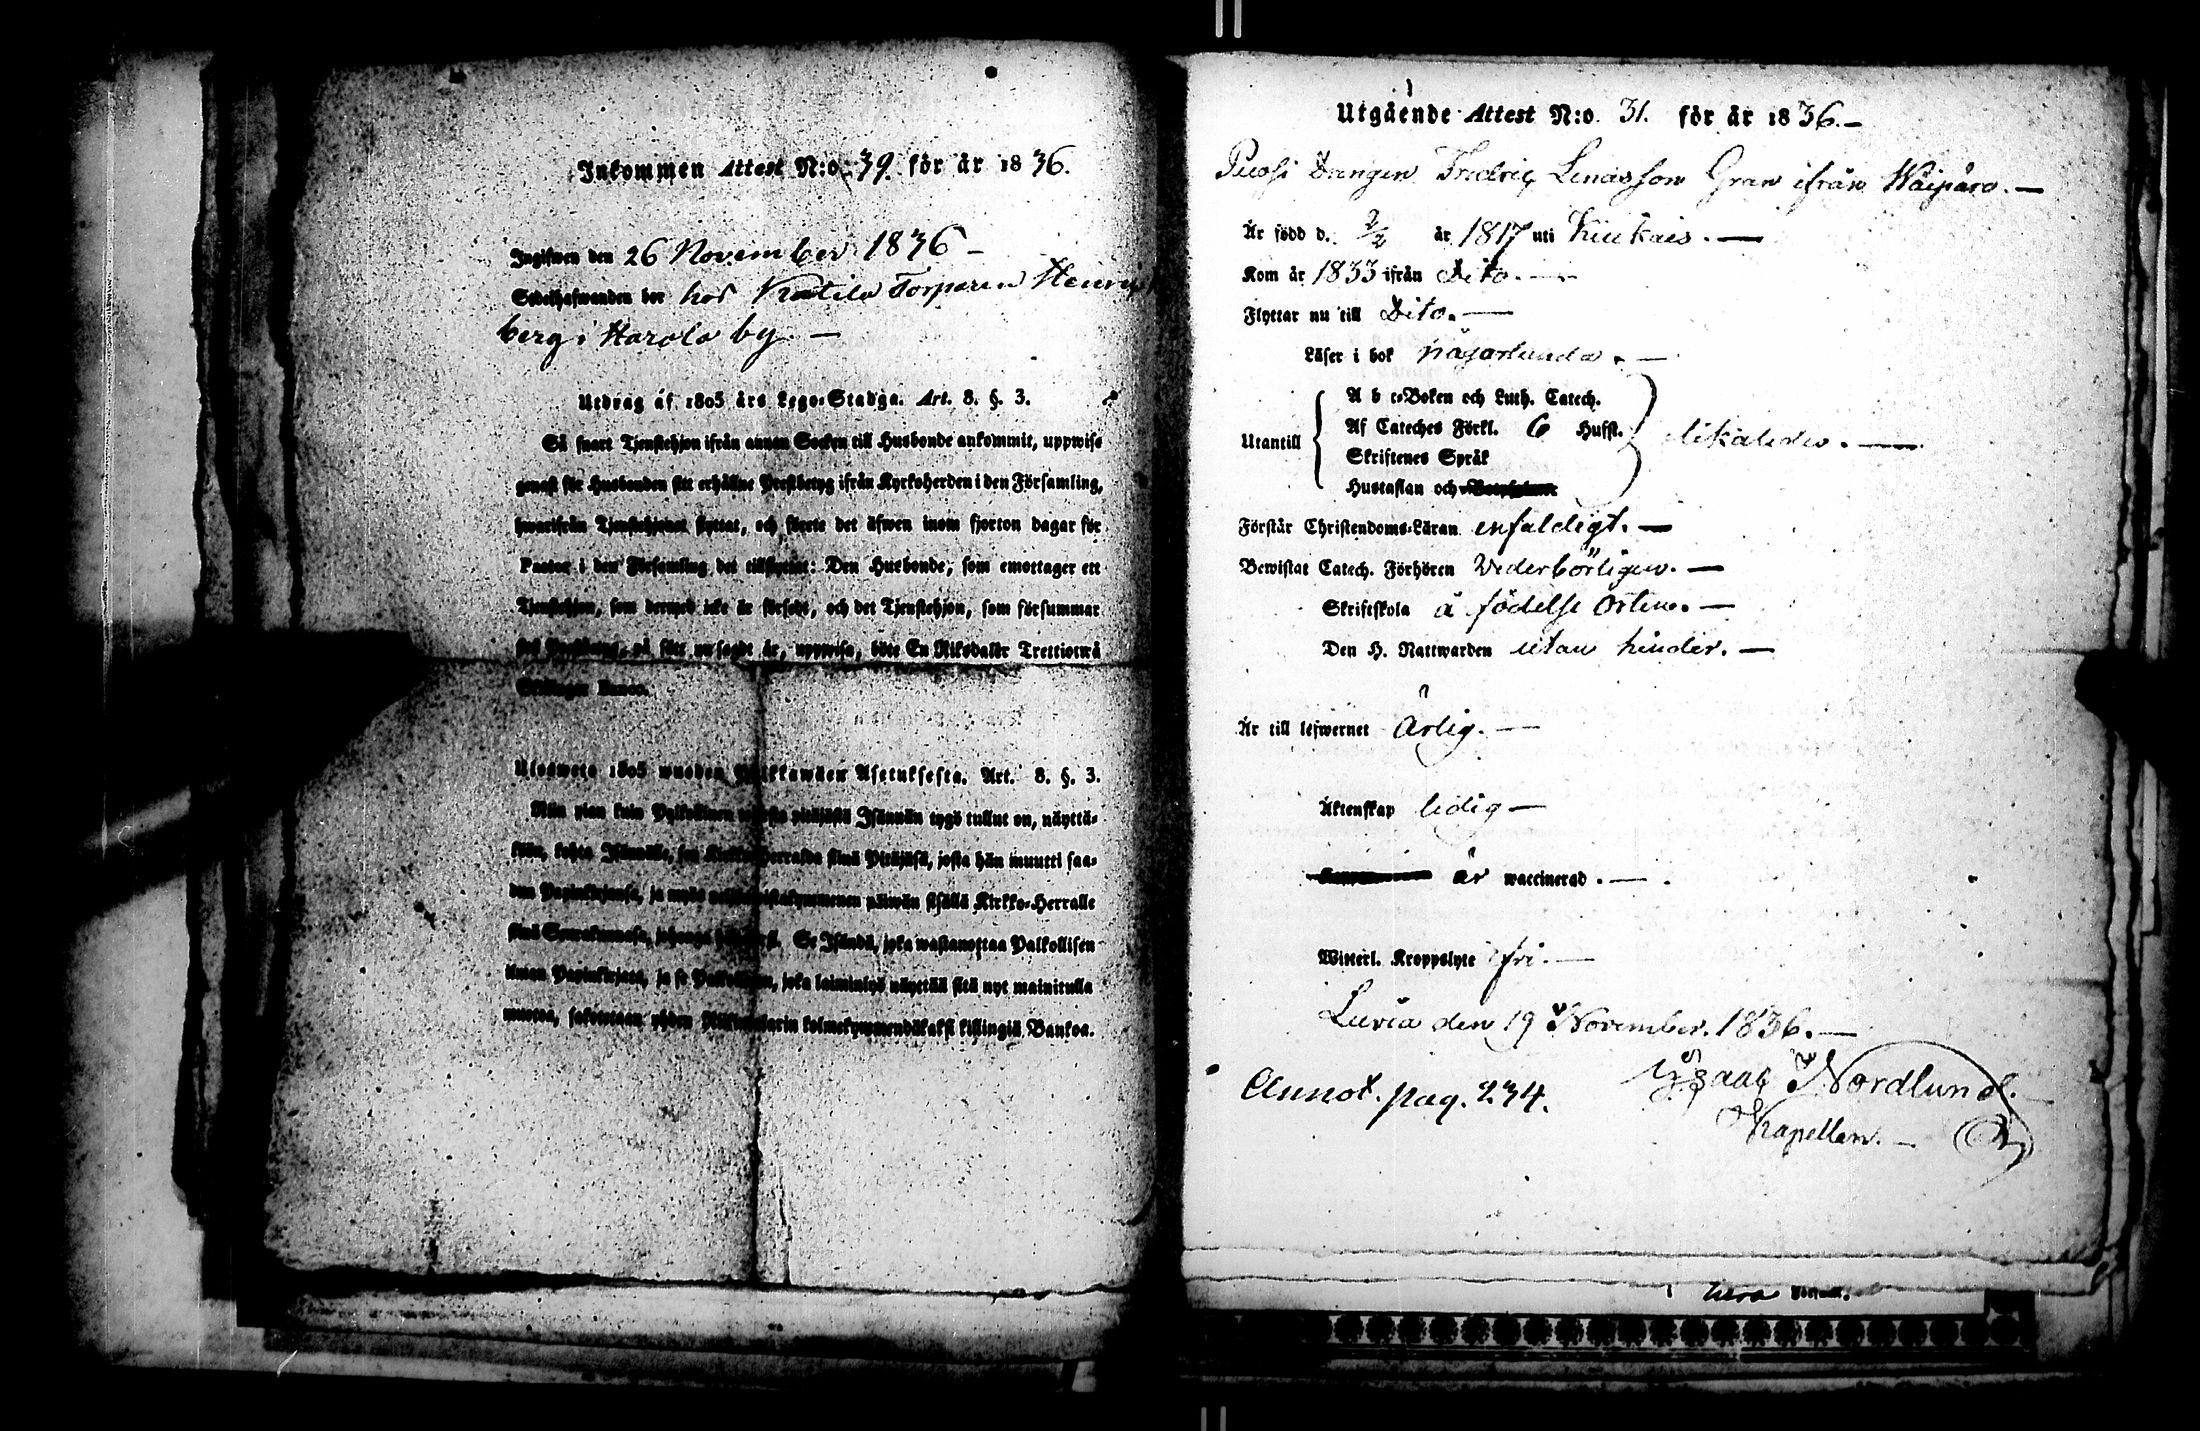 Inkommen Attest N:o 39. för år 1836.
Ingifwen den 26 November 1836 –
Sedelhafwanden bor hos Knutila Torparen Henric
berg i Harola by. –
Utdrag af 1805 års Lego-Stadga. Art. 8. §. 3.
Så snart Tjenstehjon ifrån annan Socken till Husbonde ankommit, uppwise
genast för Husbonden sitt erhållne Prestbetyg ifrån Kyrkoherden i den Församling,
hwarifrån Tjenstehjonet flyttat, och förete det äfwen inom fjorton dagar för
Pastor i den Församling det tillflyttat: Den Husbonde, som emottager ett
Tjenstehjon, som dermed icke är försedt, och det Tjenstehjon, som försummar
sitt Prestbetyg, på sätt nu sagdt är, uppwisa, böte En Riksdaler Trettiotwå
Skillingar Banco.
Ulosweto 1805 wuoden Palkkawäen Asetuksesta. Art. 8. §. 3.
Niin pian kuin Palkollinen pitäjästä Isännän tygö tullut on, näyttä-
köön, kohta Isännälle, sen Kirkko-Herralda siinä Pitäjäsä, josta hän muutti saa-
dun Papinkirjansa, ja myös päiwän sisällä Kirkko-Herralle
siinä Seurakunnasa, Se Isändä, joka wastanottaa Palkollisen
ilman Papinkirjata, ja se Palkollinen, joka laiminlyö näyttää sitä nyt mainitulla
muotoa, sakoitetaan yhden Riikintalarin kolmekymmendäkaksi killingiä Bankoa.
Utgående Attest N:o 31. för år 1836. –
Puosi Drengen Fredric Linasson Gran ifrån Wäipäro. –
Är född d. 2/2 år 1817 uti Kiukais. –
Kom år 1833 ifrån Dito. –
Flyttar nu till Dito. –
Läser i bok någorlunda. –
Utantill
A b c-Boken och Luth. Catech.
Af Cateches Förkl. 6 Hufst.
Skriftenes Språk
Hustaflan och
likaledes. –
Förstår Christendoms-Läran enfaldigt. –
Bewistat Catech. Förhören Vederbörligen. –
Skriftskola å födelse Orten. –
Den H. Nattwarden utan hinder. –
Är till lefwernet Ärlig. –
Äktenskap ledig –
är waccinerad. –
Witterl. Kroppslyte fri. –
Luvia den 19 November. 1836. –
Annot. pag. 234.
Isaac Nordlund.
Kapellan. –